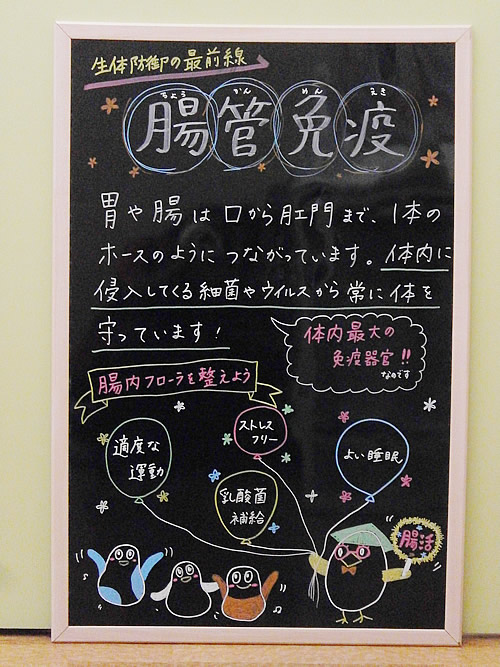 生体防御の最前線
ちょう かん めん えき
腸管免疫
胃や腸は口から肛門まで、1本の
ホースのようにつながっています。体内に
侵入してくる細菌やウイルスから常に体を
守っています!
体内最大の
免疫器官!!
なのです
腸内フローラを整えよう
適度な
運動
ストレス
フリー
乳酸菌
補給
よい睡眠
腸活